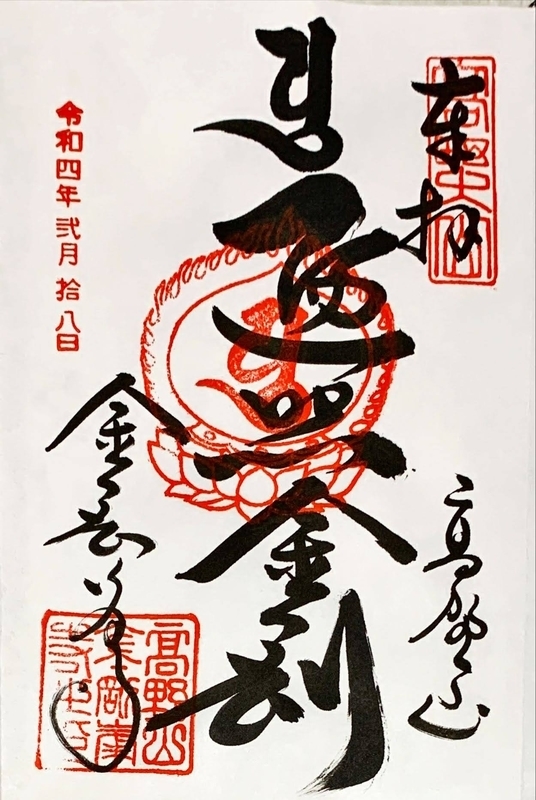 奉拝
高野山
遍照金剛
金剛峯寺
令和四年弐月拾八日
高野山
金剛峯
寺之印